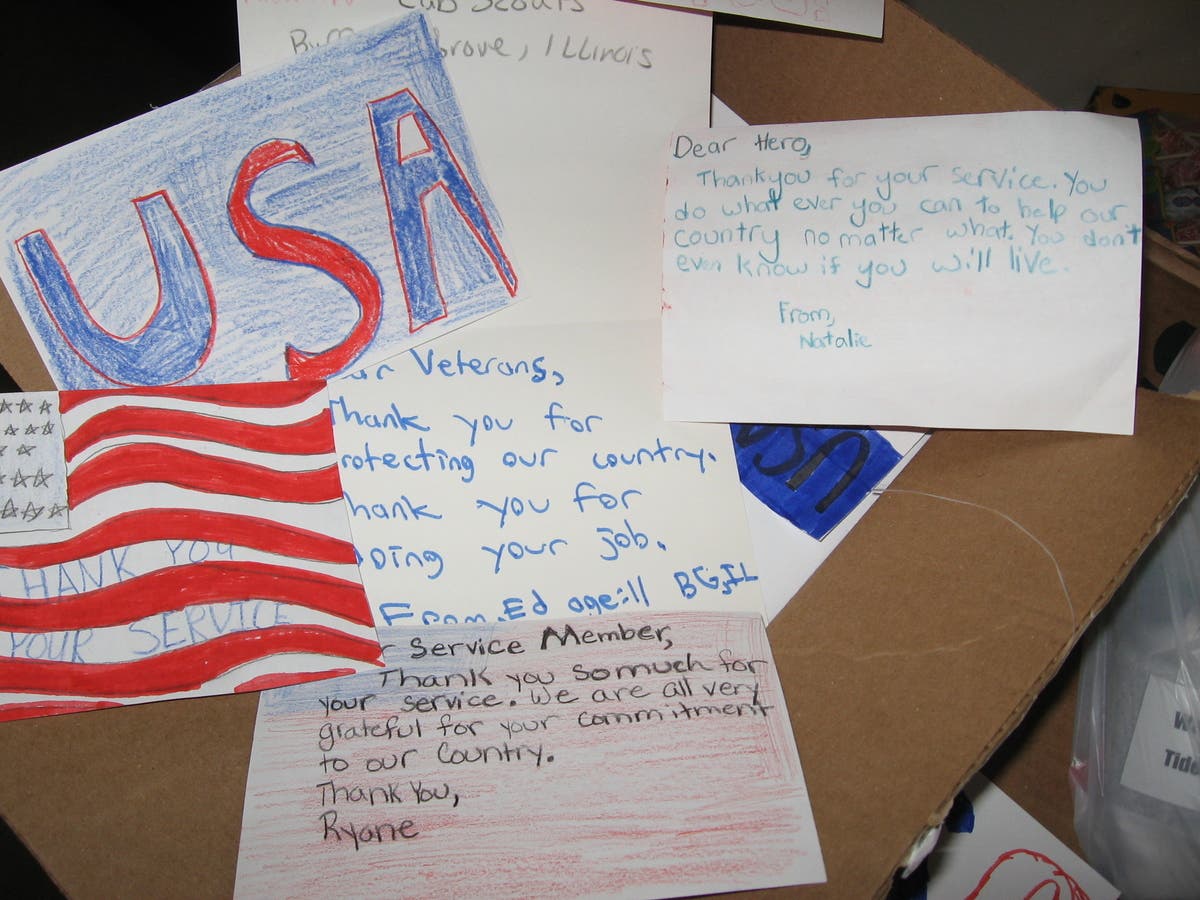 Cub Scouts
Grove, Illinois
USA
Dear Hero,
Thankyou for your service. You
do what ever you can to help our
country no matter what. You don't
even know if you will live.
From,
Natalie
Veterans,
Thank you for
rotecting our country.
hank you for
oing your job.
From, Ed age:11 BG,IL
USA
HANK YOU
YOUR SERVICE
r Service Member,
Thank you somuch for
your service. We are all very
grateful for your commitment
to our Country.
Thank You,
Ryane
Tide